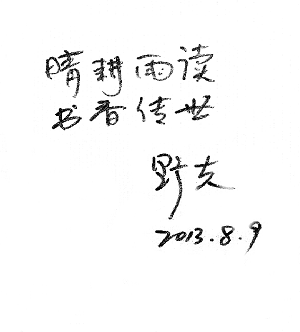 晴耕雨读
书香传世
野夫
2013.8.9